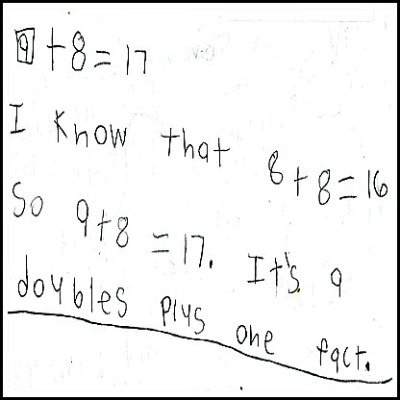 9+8=17
I know that 8+8=16
So 9+8=17. It's a
doubles plus one fact.